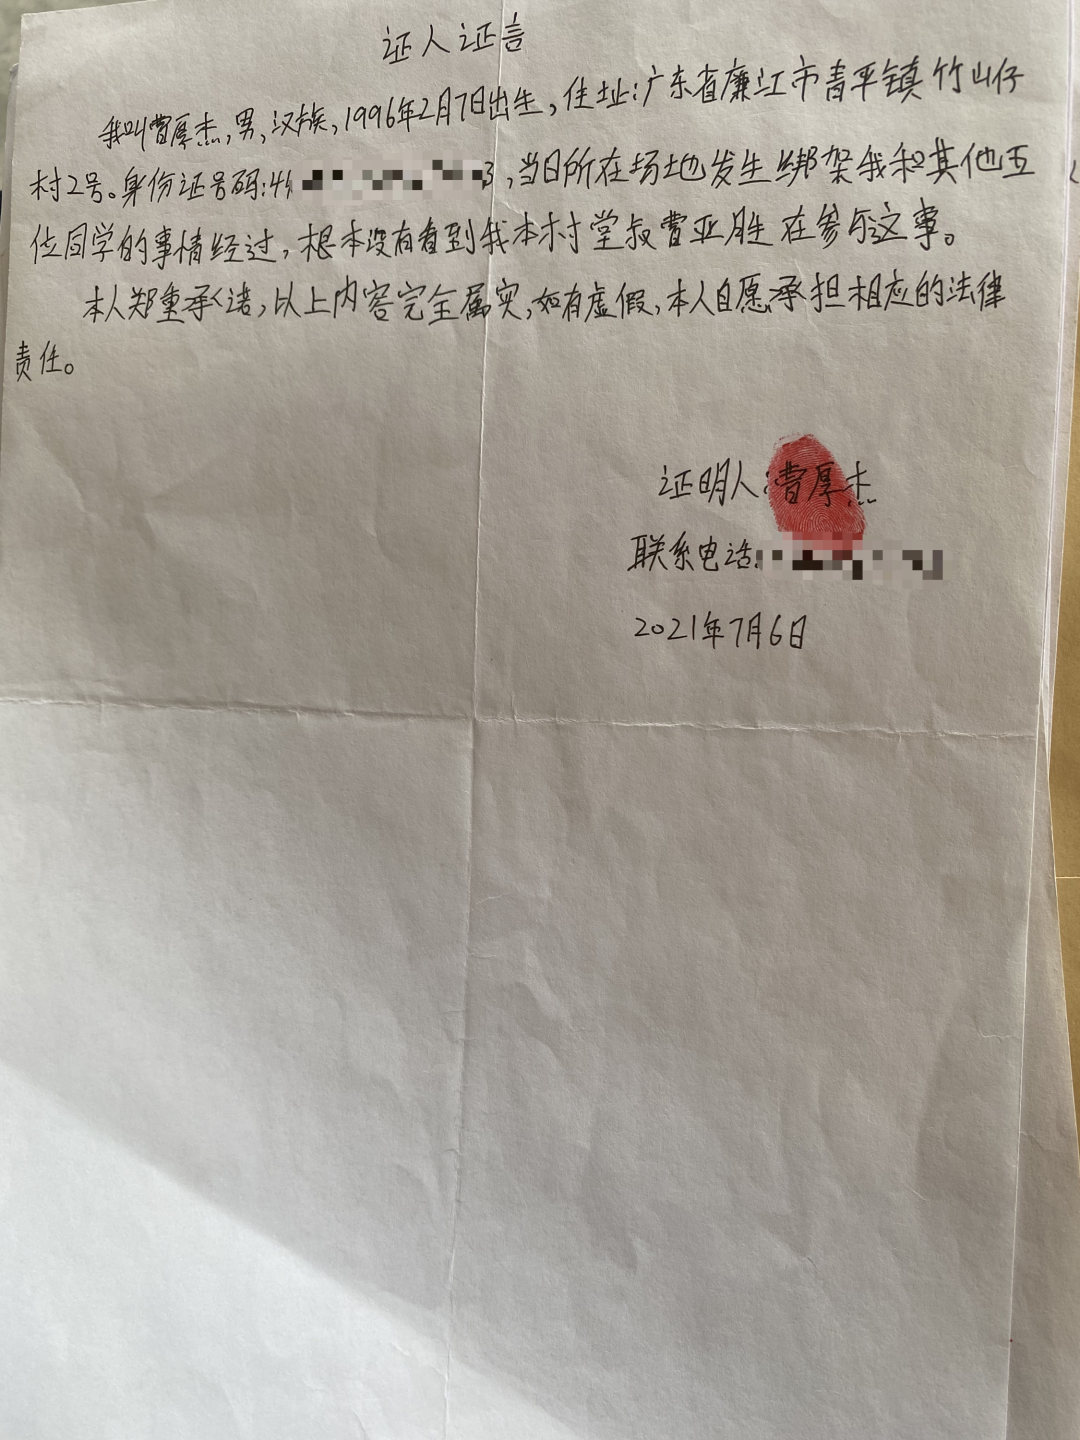 证人证言
我叫曹厚杰,男,汉族,1996年2月7日出生,住址:广东省廉江市青平镇竹山仔
村2号。身份证号码:44 3,当日所在场地发生绑架我和其他五
位同学的事情经过,根本没有看到我本村堂叔曹亚胜在参与这事。
本人郑重承诺,以上内容完全属实,如有虚假,本人自愿承担相应的法律
责任。
证明人:曹厚杰
联系电话:
2021年7月6日